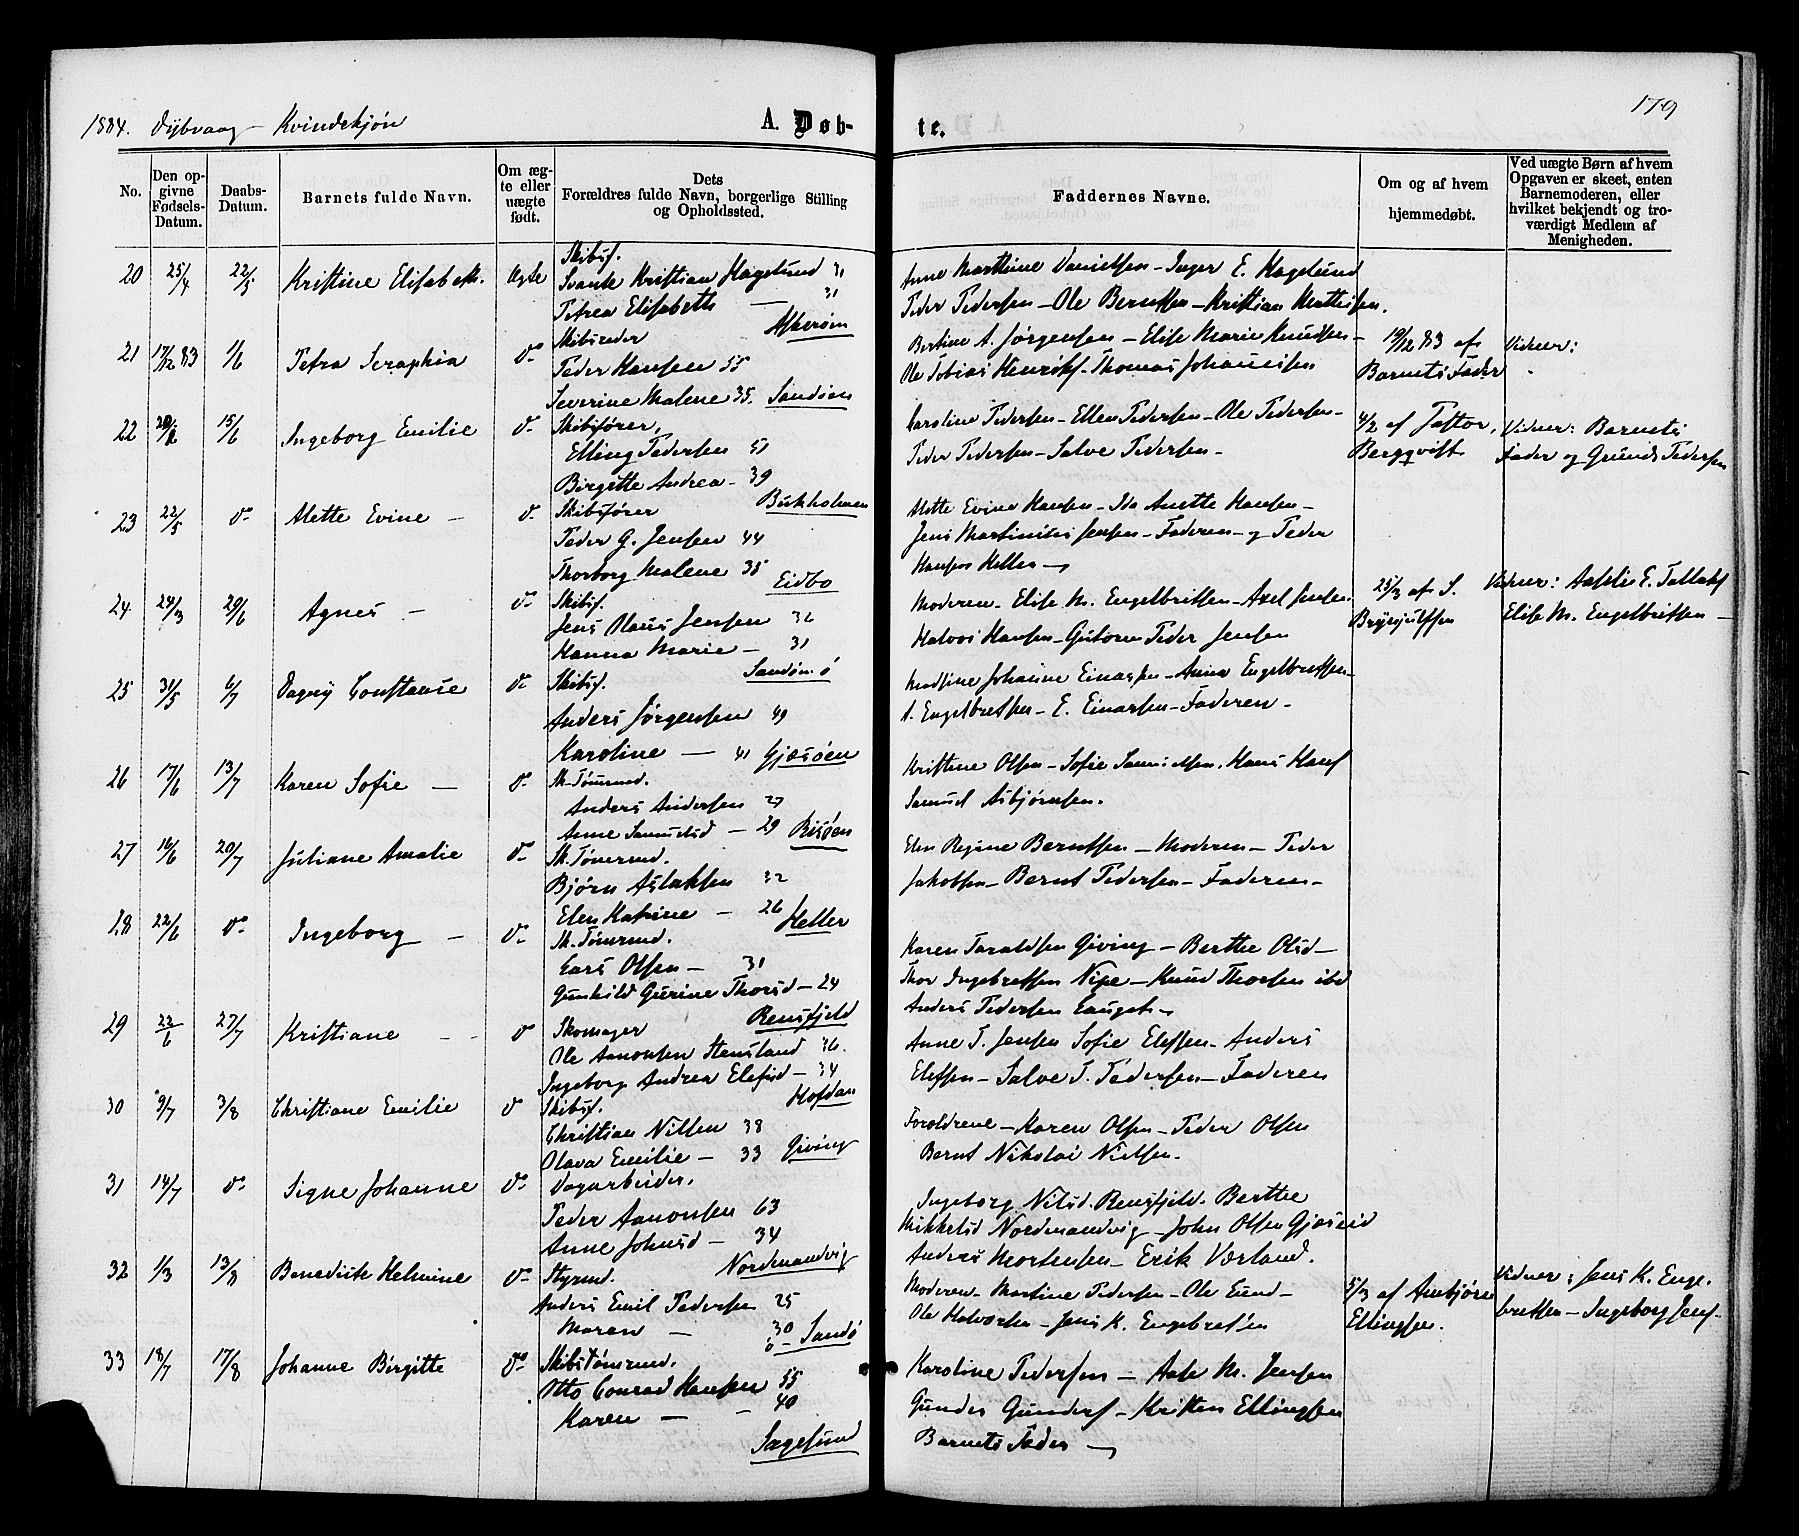 1884. Dybvaag - Kvindekjøn
A. Døb-
te.
179
No.
Den op-
givne
Fødsels-
Datum.
Daabs-
Datum.
Barnets fulde Navn.
Om æg-
te eller
uægte
født.
Dets
Forældres fulde Navn, borgerlige Stilling
og Opholdssted.
Faddernes Navne.
Om og af hvem
hjemmedøbt.
Ved uægte Børn af hvem
Opgaven er skeet, enten
Barnemoderen, eller
hvilket bekjendt og tro-
værdigt Medlem af
Menigheden.
20 25/4 22/5 Kristine Elisabeth. Ægte Skibsf.
Svante Kristian Hagelund 31
Petrea Elisabeth — 31
Askerøen
Anne Marthine Danielsen - Inger E. Hagelund
Peder Pedersen - Ole Berntsen - Kristian
21 17/12 83 1/6 Petra Seraphia do Skibsreder
Peder Hansen 55
Severine Malene 35. Sandøen
Bertine A. Jørgensen - Elise Marie Knudsen -
Ole Tobias Henriks. - Thomas Johannesen
19/12 83 af
Barnets Fader
Vidner:
22 15/6 Ingeborg Emilie do Skibsfører,
Elling Pedersen 51
Birgitte Andrea - 39
Birkholmen
Karoline Pedersen - Ellen Pedersen - Ole Pedersen -
Peder Pedersen - Salve Pedersen -
4/2 af
Bergqvist
Vidner: Barnets
Fader og Pedersen
23 22/5 do Mette Evine - do Skibsfører
Peder G. Jensen 44
Thorborg Malene 35
Eidbo
Mette Evine Hansen - Ida Anette Hansen -
Jens Martinius Jensen - Faderen - og Peder
Hansen Heller -
24 24/3 29/6 Agnes - do Skibsf.
Jens Olaus Jensen 32
Hanna Marie - 31
Sandøen ö
Moderen - Elise M. Engelbritsen - Axel Jensen
Halvor Hansen - Peder Jensen
25/3 af S.
Brynjulfsen
Vidner: Aaslie E. Tallaks
Elise M. Engelbritsen -
25 31/5 6/7 Dagny Constanse do Skibsf.
Anders Jørgensen 49
Karoline — 41 Gjæsøen
Madsine Johanne Einarsen - Anna Engelbretsen -
A. Engelbretsen - E. Einarsen - Faderen -
26 17/6 13/7 Karen Sofie - do Sk. Tømmd.
Anders Andersen 27
Anne Samuelsd - 29 Risøen
Kristine Olsen - Sofie Samuelsen. Hans Hans
Samuel Asbjørnsen.
27 16/6 20/7 Juliane Amalie do Sk. Tømmd.
Bjørn Aslaksen 32
Elen Katrine - 26
Heller
Elen Regine Berntsen - Moderen - Peder
Jakobsen - Bernt Pedersen - Faderen -
28 22/6 do Ingeborg - do Sk. Tømmd.
Lars Olsen - 31
Gunhild Gurine Thorsd - 24
Rensfjeld
Karen Taraldsen Giving - Berthe Olsd -
Thor Ingebretsen Nipe - Knud Thorsen ibd
Anders Pedersen
29 22/6 27/7 Kristiane - - do Skomager
Ole Aanonsen Stensland 36.
Ingeborg Andrea Elefsd - 34
Hofdan
Anne T. Jensen Sofie Elefsen - Anders
Elefsen - Salve T. Pedersen - Faderen
30 9/7 3/8 Christiane Emilie do Skibsf.
Christian Nilsen 38
Olava Emilie - 33 Giving
Forældrene - Karen Olsen - Peder Olsen
Bernt Nikolai Nielsen -
31 14/7 do Signe Johanne do Dagarbeider.
Peder Aanonsen 63
Anne Johnsd - 34
Nordmandvig
Ingeborg Nilsd. Rensfjeld. Berthe
Mikkelsd Nordmandvig - John Olsen
Anders Mortensen - Erik Værland.
32 1/3 13/8 Benedicte Helmine do Styrmd.
Anders Emil Pedersen 25
Maren - 30
Sandø
Moderen - Martine Pedersen - Ole Lund -
Ole Halvorsen - Jens K. Engebretsen
5/3 af Anbjørn
Ellingsen.
Vidner: Jens K. Enge-
bretsen - Ingeborg Jens.
33 18/7 17/8 Johanne Birgitte do Skibstømmd.
Otto Conrad Hansen 55
Karen — - 40
Sagesund
Karoline Pedersen - Aase M. Jensen
Gunder Gunders. - Kristen Ellingsen
Barnets Fader -